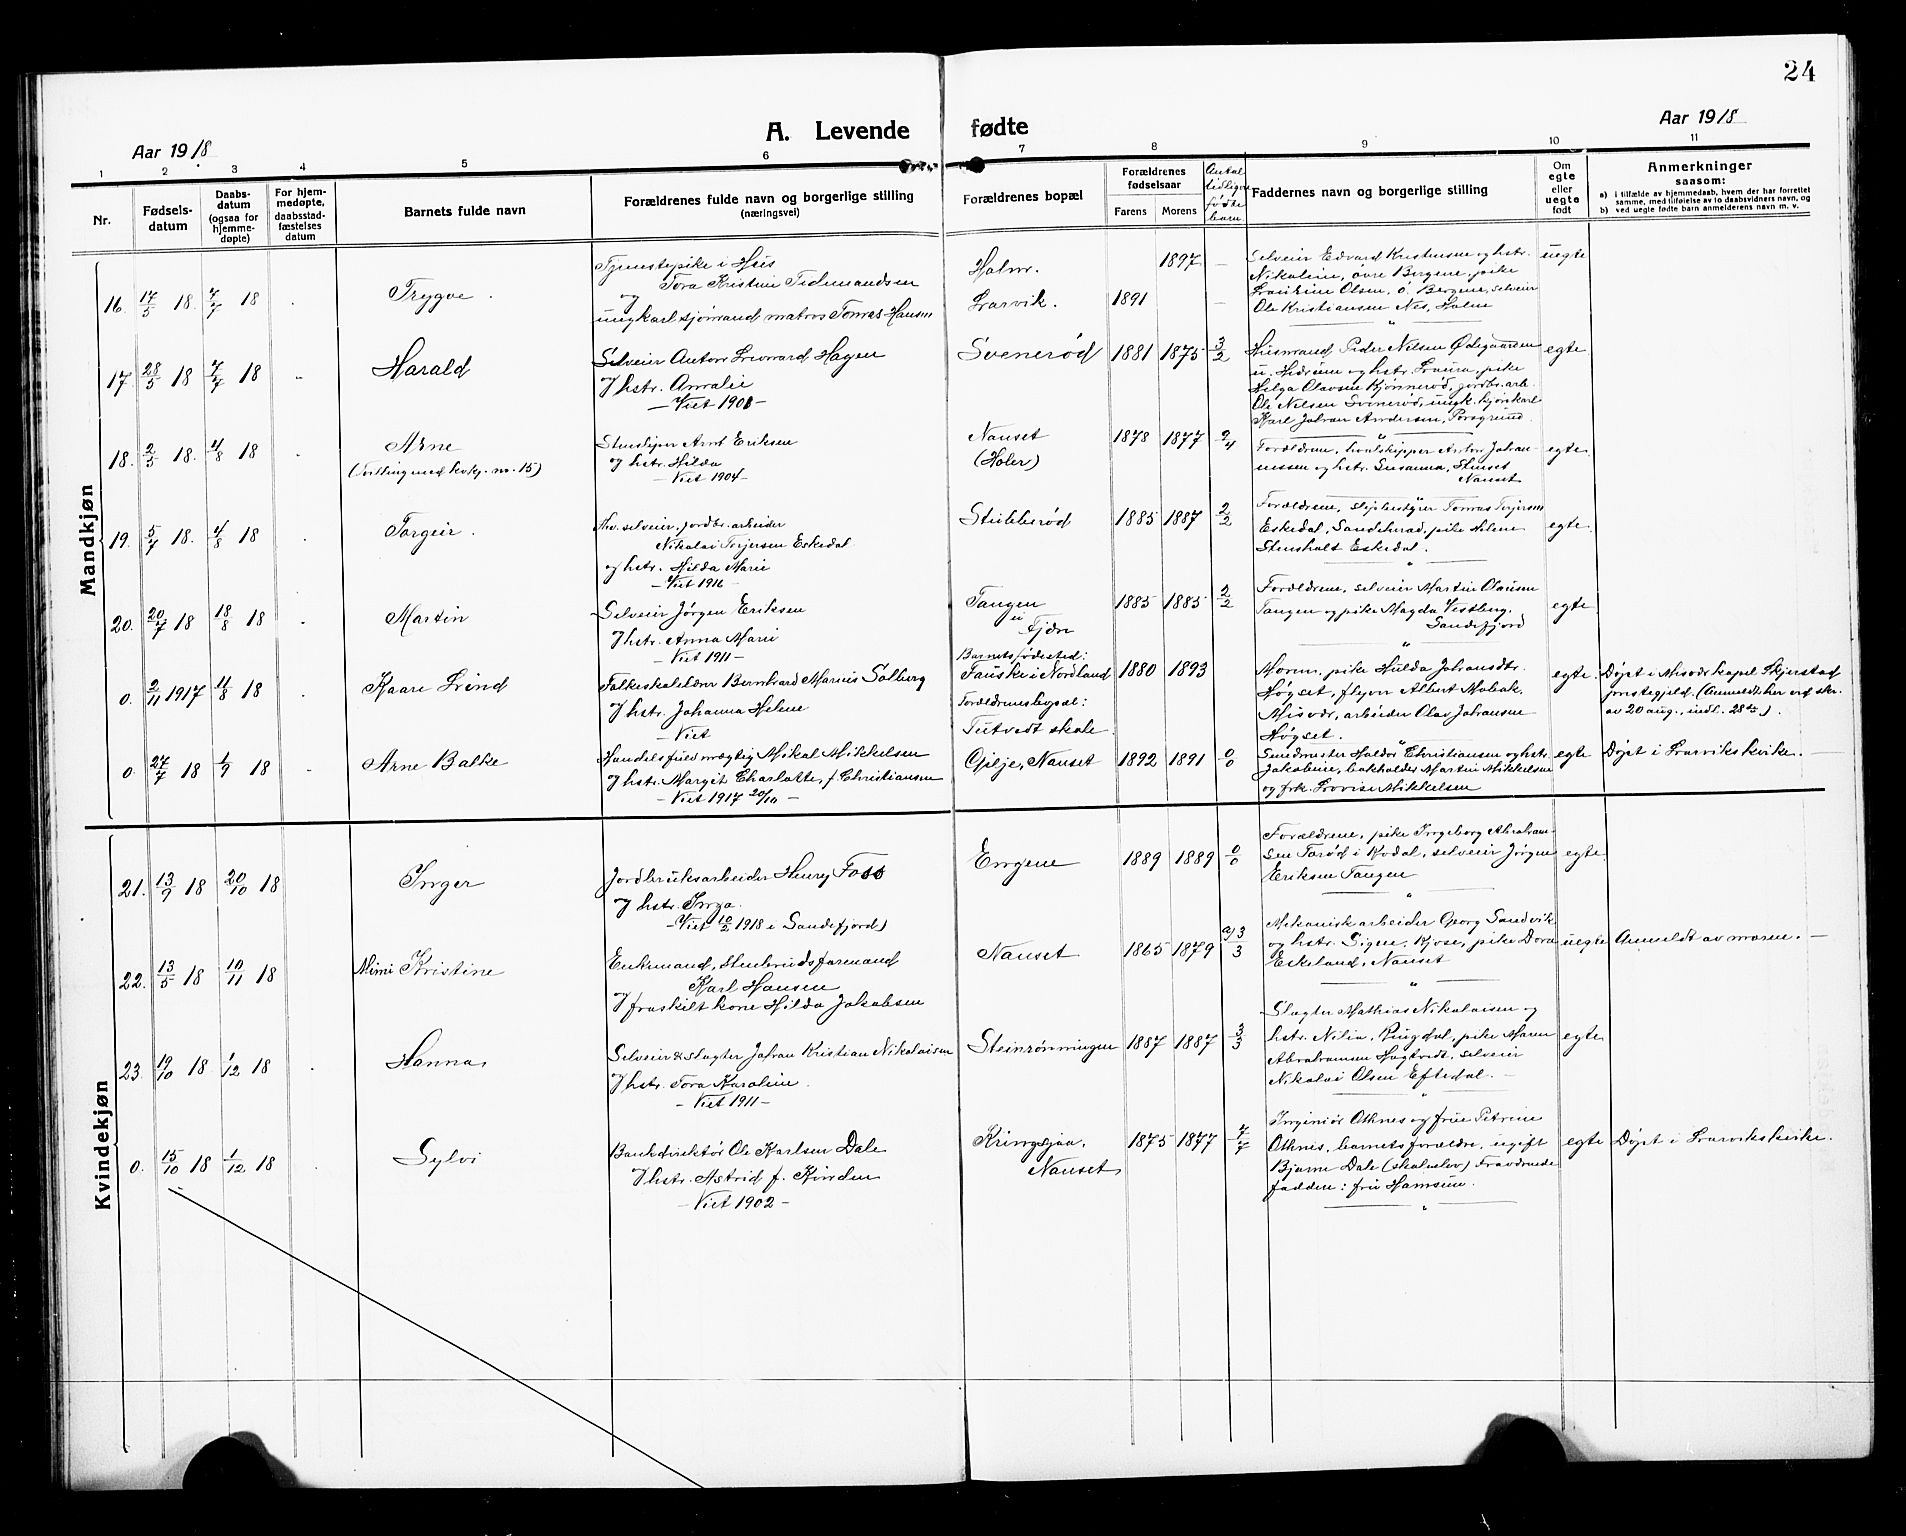 24
A. Levende fødte
Aar 1918
Aar 1918
1 2 3 4 5 6 7 8 9 10 11
Nr.
Fødsels-
datum
Daabs-
datum
(ogsaa for
hjemme-
døpte)
For hjem-
medøpte,
daabsstad-
fæstelses
datum
Barnets fulde navn
Forældrenes fulde navn og borgerlige stilling
(næringsvei)
Forældrenes bopæl
Forældrenes
fødselsaar
Farens Morens
Antal
tidligere
fødte
barn
Faddernes navn og borgerlige stilling
Om
egte
eller
uegte
født
Anmerkninger
saasom:
a) i tilfælde av hjemmedaab, hvem der har forrettet
samme, med tilføielse av to daabsvidners navn, og
b) ved uegte fødte barn anmelderens navn m. v.
Mandkjøn
16. 17/5 18. 7/7 18
Trygve.
Tjenestepike i Hus
Tora Kristine Tidemandsen
og
ungkarl sjømand matros Tomas Hansen
Holm.
Larvik.
1897 –
1891 –
Selveier Edvard Kristensen og hstr.
Nikoline, øvre Bergene, pike
Lourine Olsen, ö. Bergene, selveier
Ole Kristiansen Nes, Holm
uegte
17. 28/5 18 7/7 18
Harald
Selveier Anton Leonard Hagen
og hstr. Amalie
– Viet 1901 –
Svenerød
1881 1875 3/2
Husmand Peder Nilsen Ødegaarden
u. Hedrum og hstr. Laura, pike
Helga Olavsen Kjønnerød, jordbr. arb.
Ole Nilsen Svenerød, ungk. kjørekarl
Karl Johan Andersen, Porsgrund.
egte
18. 2/5 18. 4/8 18
Arne
(Tvilling med kvkj. nr. 15)
Stenhuger Arnt Eriksen
og hstr. Hilda
– Viet 1904 –
Nauset
(Holer)
1878 1877 9/4
Forældrene, hvalskipper Anton Johan-
nessen og hstr. Susanna, Stuset
Nauset
egte
19. 5/7 18. 4/8 18
Torgeir.
Fhv. selveier, jordbr. arbeider
Nikolai Torjersen Eskedal
og hstr. Hilda Marie
– Viet 1916 –
Stubberød
1885 1887 2/2
Forældrene, slipbestyrer Tomas Torjersen
Eskedal, Sandeherad, pike Helene
Stensholt Eskedal.
egte
20. 20/7 18 18/8 18
Martin
Selveier Jørgen Eriksen
og hstr. Anna Marie
– Viet 1911 –
Tangen
u
Fjære
1885 1885 2/2
Forældrene, selveier Martin Olausen
Tangen og pike Magda Vestberg,
Sandefjord
egte
0. 2/11 1917 11/8 18
Kaare Lind
Folkeskolelærer Bernhard Marius Solberg
og hstr. Johanna Helene
– Viet
Barnets fødested:
Fauske i Nordland
Forældrenes bopæl:
Tutvedt skole.
1880 1893
Moren, pike Hulda Johansdtr.
Høgset, flyon Albert Mobak,
Misvær, arbeider Olav Johansen
Høgset.
egte
Døpt i Misvær kapel Skjerstad
prestegjeld. (Anmeldt her ved skr.
av 20 aug., indl. 28de).
0. 27/7 18 1/9 18
Arne Balke
Handelsfuldmægtig Mikal Mikkelsen
og hstr. Margit Charlotte, f. Christiansen
– Viet 1917 20/10 –
Gilje, Nauset
1892 1891 0/0
Smedmester Haldor Christiansen og hstr.
Jakobine, bokholder Martin Mikkelsen
og frk. Lovise Mikkelsen
egte
Døpt i Larviks kirke. –
Kvindekjøn
21. 13/9 18 20/10 18
Inger
Jordbruksarbeider Henry Foss
og hstr. Inga.
– Viet 10/2 1918 i Sandefjord)
Engene
1889 1889 0/0
Forældrene, pike Ingeborg Abraham-
sen Tarød i Kodal, selveier Jörgen
Eriksen Tangen
egte.
22. 13/5 18 10/11 18
Mimi Kristine
Enkemand, Stenbrudsformand
Karl Hansen
og fraskilt kone Hilda Jakobsen
Nauset
1865 1879 a) 3/3
Mekanisk arbeider Georg Sandvik
og hstr. Signe, Kjose, pike Dora
Eskeland, Nauset
uegte
Anmeldt av moren. –
23. 19/10 18 1/12 18
Hanna
Selveier & slagter Johan Kristian Nikolaisen
og hstr. Tora Karoline.
– Viet 1911 –
Steinrønningen
1887 1887 3/3
Slagter Mathias Nikolaisen og
hstr. Nilia, Rugdal, pike Maren
Abrahamsen Hagtvedt, selveier
Nikolai Olsen Eftedal. –
egte
0. 15/10 18 1/12 18
Sylvi
Bankdirektör Ole Karlsen Dale
og hstr. Astrid f. Kinden
– Viet 1902 –
Kringsjaa,
Nauset
1875 1877 7/7
Ingeniör Othnes og frue Petrine
Othnes, barnets forældre, ugift
Bjarne Dale (skoleelev) Fraværende
faddere: fru Hamsun.
egte
Døpt i Larviks kirke.